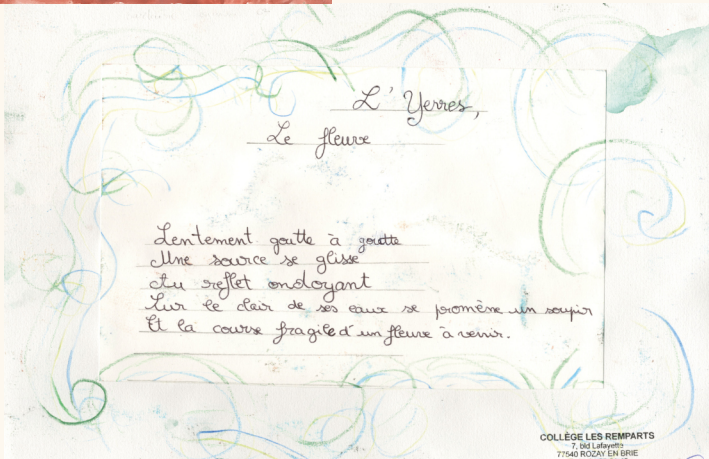 L'Yerres,
Le fleuve
Lentement goutte à goutte
Une source se glisse
Au reflet ondoyant
Sur le clair de ses eaux se promène un soupir
Et la course fragile d'un fleuve à venir.
COLLÈGE LES REMPARTS
7, bld Lafayette
77540 ROZAY EN BRIE